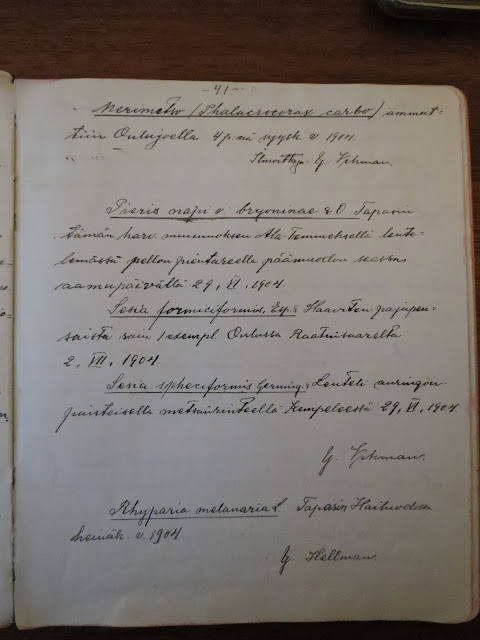 - 41 -
Merimetso (Phalacrocorax carbo) ammut-
tiin Oulujoella 4 p:nä syysk. v. 1904.
Ilmoittaja G.
Pieris napi v. bryoniae & O Tapasin
tämän harv. muunnoksen Ala Temmeksellä lente-
lemässä pellon pientareella päämuodon seassa
aamupäivällä 29, VI, 1904.
Sesia formiciformis, Esp. Haaviten pajupen-
saista sain 1 exempl. Oulussa Raatinsaarelta
2, VII, 1904
Sesia spheciformis Gerning. Lenteli auringon-
paisteisella metsärinteellä Kempeleessä 29, VI, 1904.
G.
Rhyparia melanaria L Tapasin Hailuodossa
heinäk. v. 1904.
G. Hellman